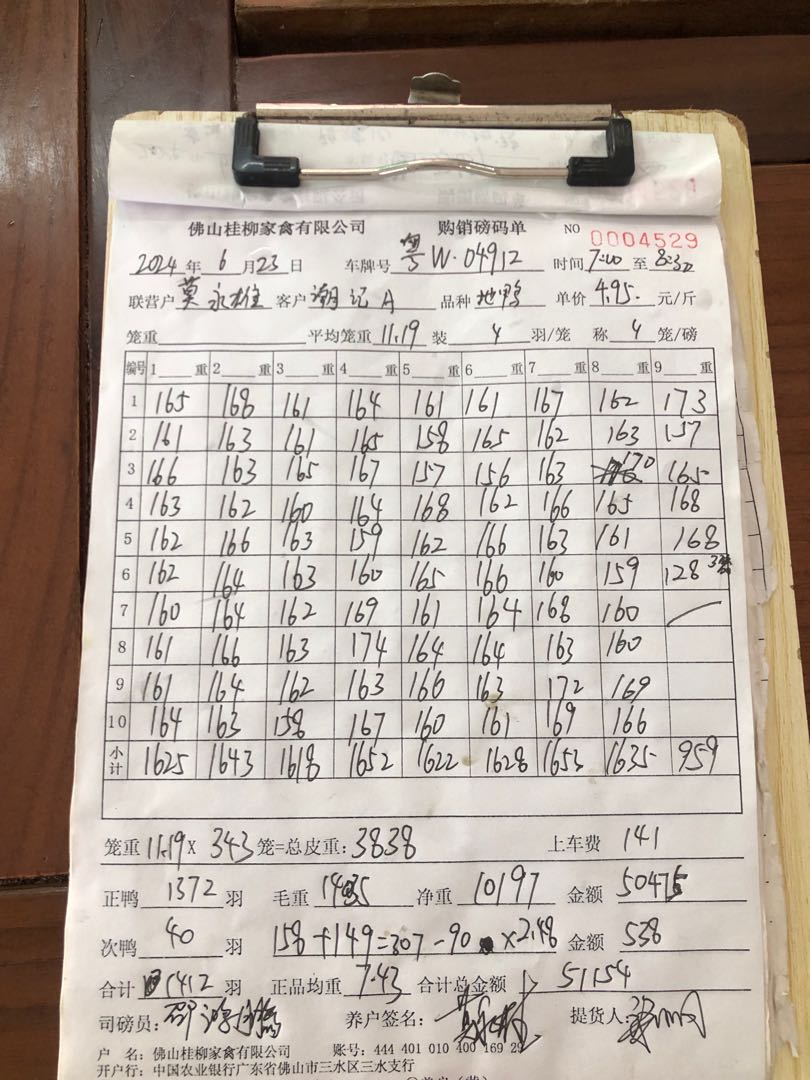 佛山桂柳家禽有限公司 购销磅码单 NO 0004529
2024年6月23日 车牌号 粤W·04912 时间7:00至8:30
联营户 莫永雄 客户 潮记A 品种 地鸭 单价 4.95 元/斤
笼重 平均笼重 11.19 装 4 羽/笼 称 4 笼/磅
编号 1 重 2 重 3 重 4 重 5 重 6 重 7 重 8 重 9 重
1 165 168 161 164 161 161 167 162 173
2 161 163 161 165 158 165 162 163 157
3 166 163 165 167 157 156 163 170 165
4 163 162 160 164 168 162 166 165 168
5 162 166 163 159 162 166 163 161 168
6 162 164 163 160 165 166 160 159 128 3笼
7 160 164 162 169 161 164 168 160
8 161 166 163 174 164 164 163 160
9 161 164 162 163 166 163 172 169
10 164 163 158 167 160 161 169 166
小计 1625 1643 1618 1652 1622 1628 1653 1635 959
笼重 11.19 X 343 笼=总皮重: 3838 上车费 141
正鸭 1372 羽 毛重 14035 净重 10197 金额 50475
次鸭 40 羽 158+149=307-90 ×2.48 金额 538
合计 1412 羽 正品均重 7.43 合计总金额 51154
司磅员: 养户签名: 提货人:
户 名: 佛山桂柳家禽有限公司 账号: 444 401 010 400 169 29
开户行: 中国农业银行广东省佛山市三水区三水支行